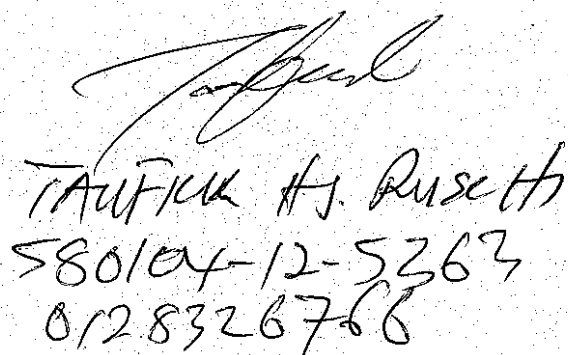 TAUFICK HJ. RUSCHI
580104-12-5363
0128326766